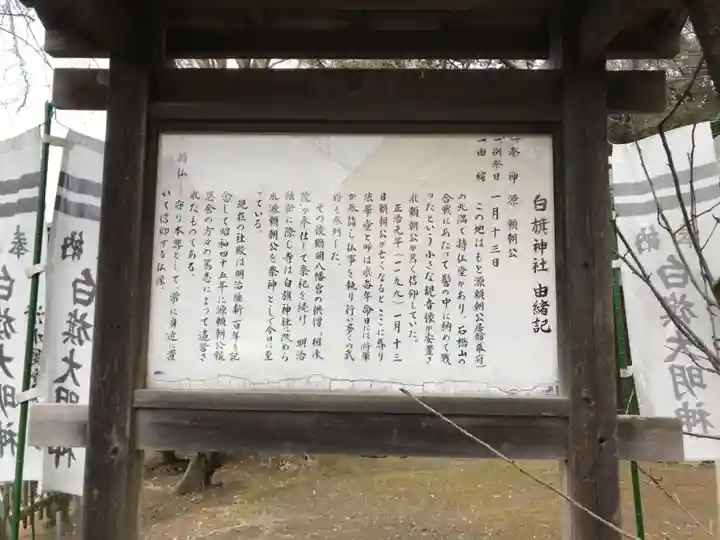 白旗神社 由緒記
祭神 源 頼朝公
一例祭日 一月十三日
一由緒
この地はもと源頼朝公居館(幕府)
の北隅で持仏堂があり、石橋山の
合戦にあたって髻の中に納めて戦
ったという小さな観音像が安置さ
れ頼朝公が篤く信仰していた。
正治元年(一一九九)一月十三
日頼朝公が亡くなるとここに葬り
法華堂と呼ば れ毎年命日には将軍
が参詣し仏事を執り行い多くの武
将も参列した。
その後鶴岡八幡宮の供僧 相承
院が奉仕して祭祀を続け 明治
維新に際し寺は白旗神社に改めら
れ源頼朝公を祭神として今日に至
っている。
現在の社殿は明治維新百年を記
念して昭和四十五年に源頼朝公報
恩会の方々の篤志によって造営さ
れたものである。
持仏
守り本尊として、常に身近に置
いて信仰する仏像。
奉
白旗大明神
納
白旗大明神
納
白旗大明神